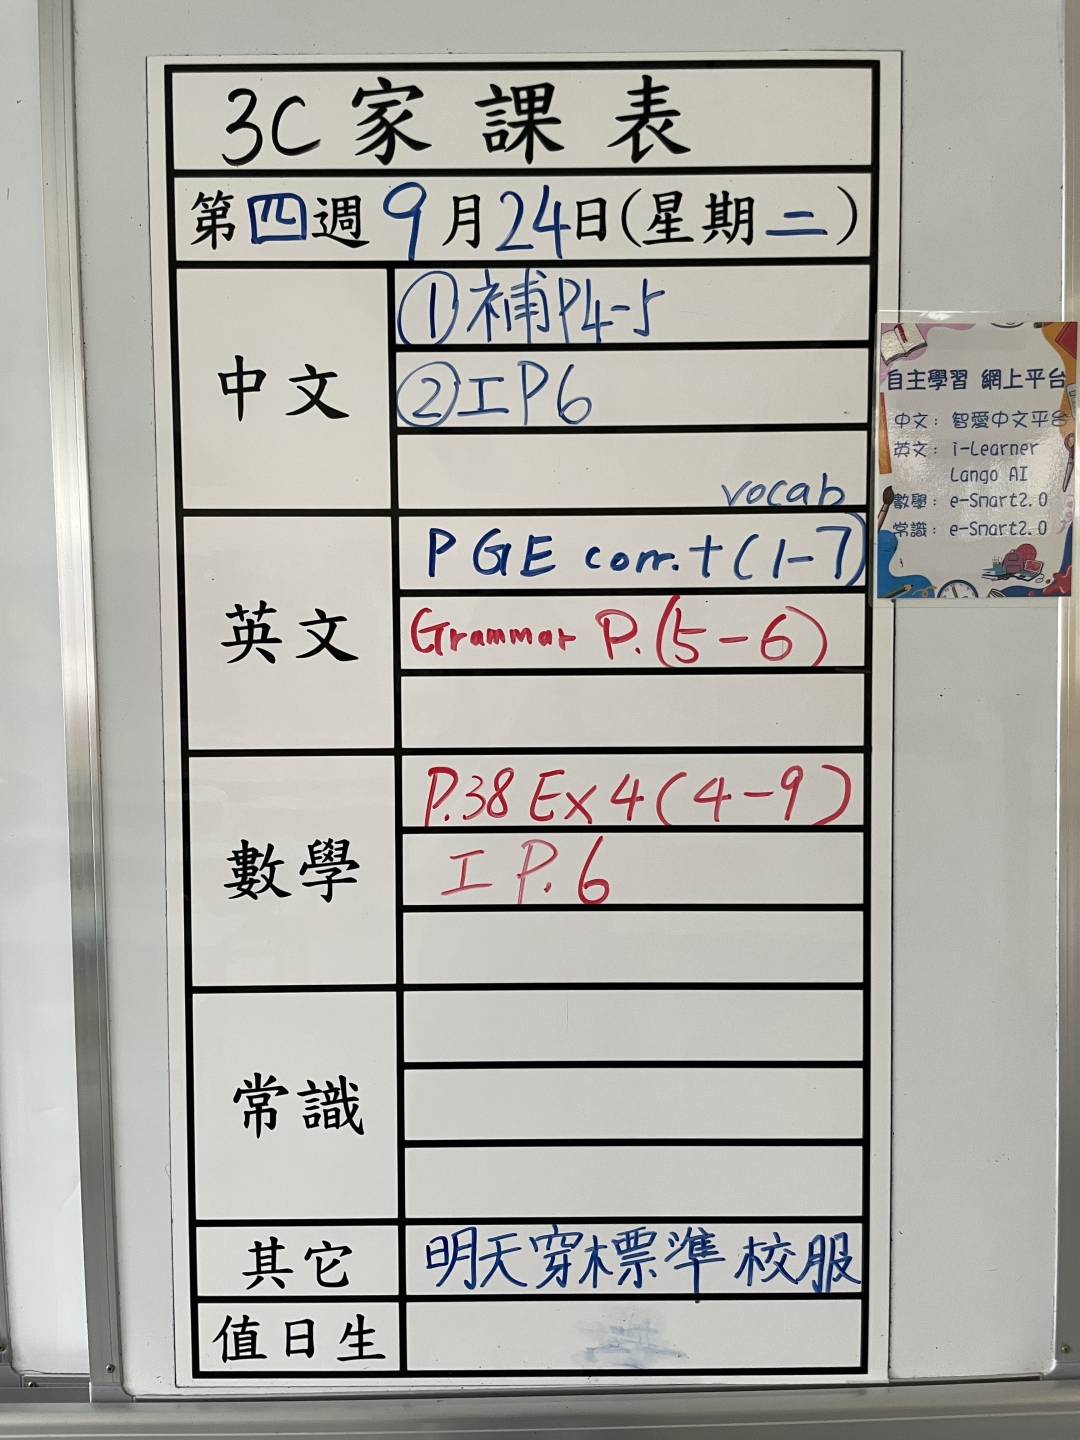 3C 家課表
第四週9月24日(星期二)
中文
①補P4-5
②工P6
vocab
英文
PGE corr.+(1-7)
Grammar P.(5-6)
數學
P.38 Ex4(4-9)
工 P.6
常識
其它
明天穿標準校服
值日生
自主學習 網上平台
中文：智愛中文平台
英文：i-Learner
Lango AI
數學：e-Smart2.0
常識：e-Smart2.0